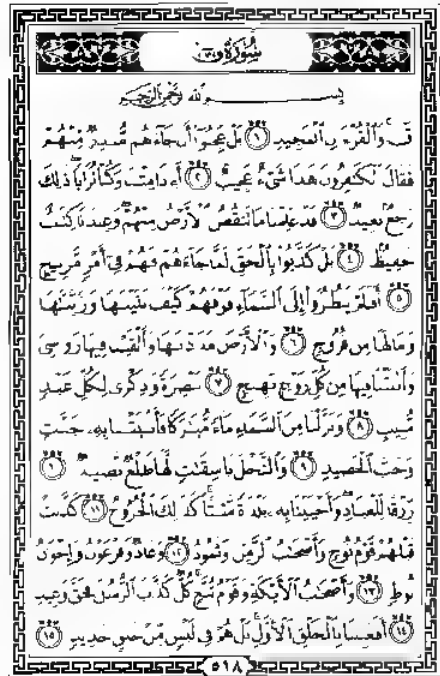 سُورَةُ ق
بِسْمِ اللَّهِ الرَّحْمَٰنِ الرَّحِيمِ
قٓ ۚ وَالْقُرْءَانِ الْمَجِيدِ ١ بَلْ عَجِبُوٓا۟ أَن جَآءَهُم مُّنذِرٌ مِّنْهُمْ
فَقَالَ الْكَٰفِرُونَ هَٰذَا شَىْءٌ عَجِيبٌ ٢ أَءِذَا مِتْنَا وَكُنَّا تُرَابًا ۖ ذَٰلِكَ
رَجْعٌۢ بَعِيدٌ ٣ قَدْ عَلِمْنَا مَا تَنقُصُ الْأَرْضُ مِنْهُمْ ۖ وَعِندَنَا كِتَٰبٌ
حَفِيظٌۢ ٤ بَلْ كَذَّبُوا۟ بِالْحَقِّ لَمَّا جَآءَهُمْ فَهُمْ فِىٓ أَمْرٍ مَّرِيجٍ
٥ أَفَلَمْ يَنظُرُوٓا۟ إِلَى السَّمَآءِ فَوْقَهُمْ كَيْفَ بَنَيْنَٰهَا وَزَيَّنَّٰهَا
وَمَا لَهَا مِن فُرُوجٍ ٦ وَالْأَرْضَ مَدَدْنَٰهَا وَأَلْقَيْنَا فِيهَا رَوَٰسِىَ
وَأَنۢبَتْنَا فِيهَا مِن كُلِّ زَوْجٍۭ بَهِيجٍ ٧ تَبْصِرَةً وَذِكْرَىٰ لِكُلِّ عَبْدٍ
مُّنِيبٍ ٨ وَنَزَّلْنَا مِنَ السَّمَآءِ مَآءً مُّبَٰرَكًا فَأَنۢبَتْنَا بِهِۦ جَنَّٰتٍ
وَحَبَّ الْحَصِيدِ ٩ وَالنَّخْلَ بَاسِقَٰتٍ لَّهَا طَلْعٌ نَّضِيدٌ ١٠
رِّزْقًا لِّلْعِبَادِ ۖ وَأَحْيَيْنَا بِهِۦ بَلْدَةً مَّيْتًا ۚ كَذَٰلِكَ الْخُرُوجُ ١١ كَذَّبَتْ
قَبْلَهُمْ قَوْمُ نُوحٍ وَأَصْحَٰبُ الرَّسِّ وَثَمُودُ ١٢ وَعَادٌ وَفِرْعَوْنُ وَإِخْوَٰنُ
لُوطٍ ١٣ وَأَصْحَٰبُ الْأَيْكَةِ وَقَوْمُ تُبَّعٍ ۚ كُلٌّ كَذَّبَ الرُّسُلَ فَحَقَّ وَعِيدِ
١٤ أَفَعَيِينَا بِالْخَلْقِ الْأَوَّلِ ۚ بَلْ هُمْ فِى لَبْسٍ مِّنْ خَلْقٍ جَدِيدٍ ١٥
٥١٨